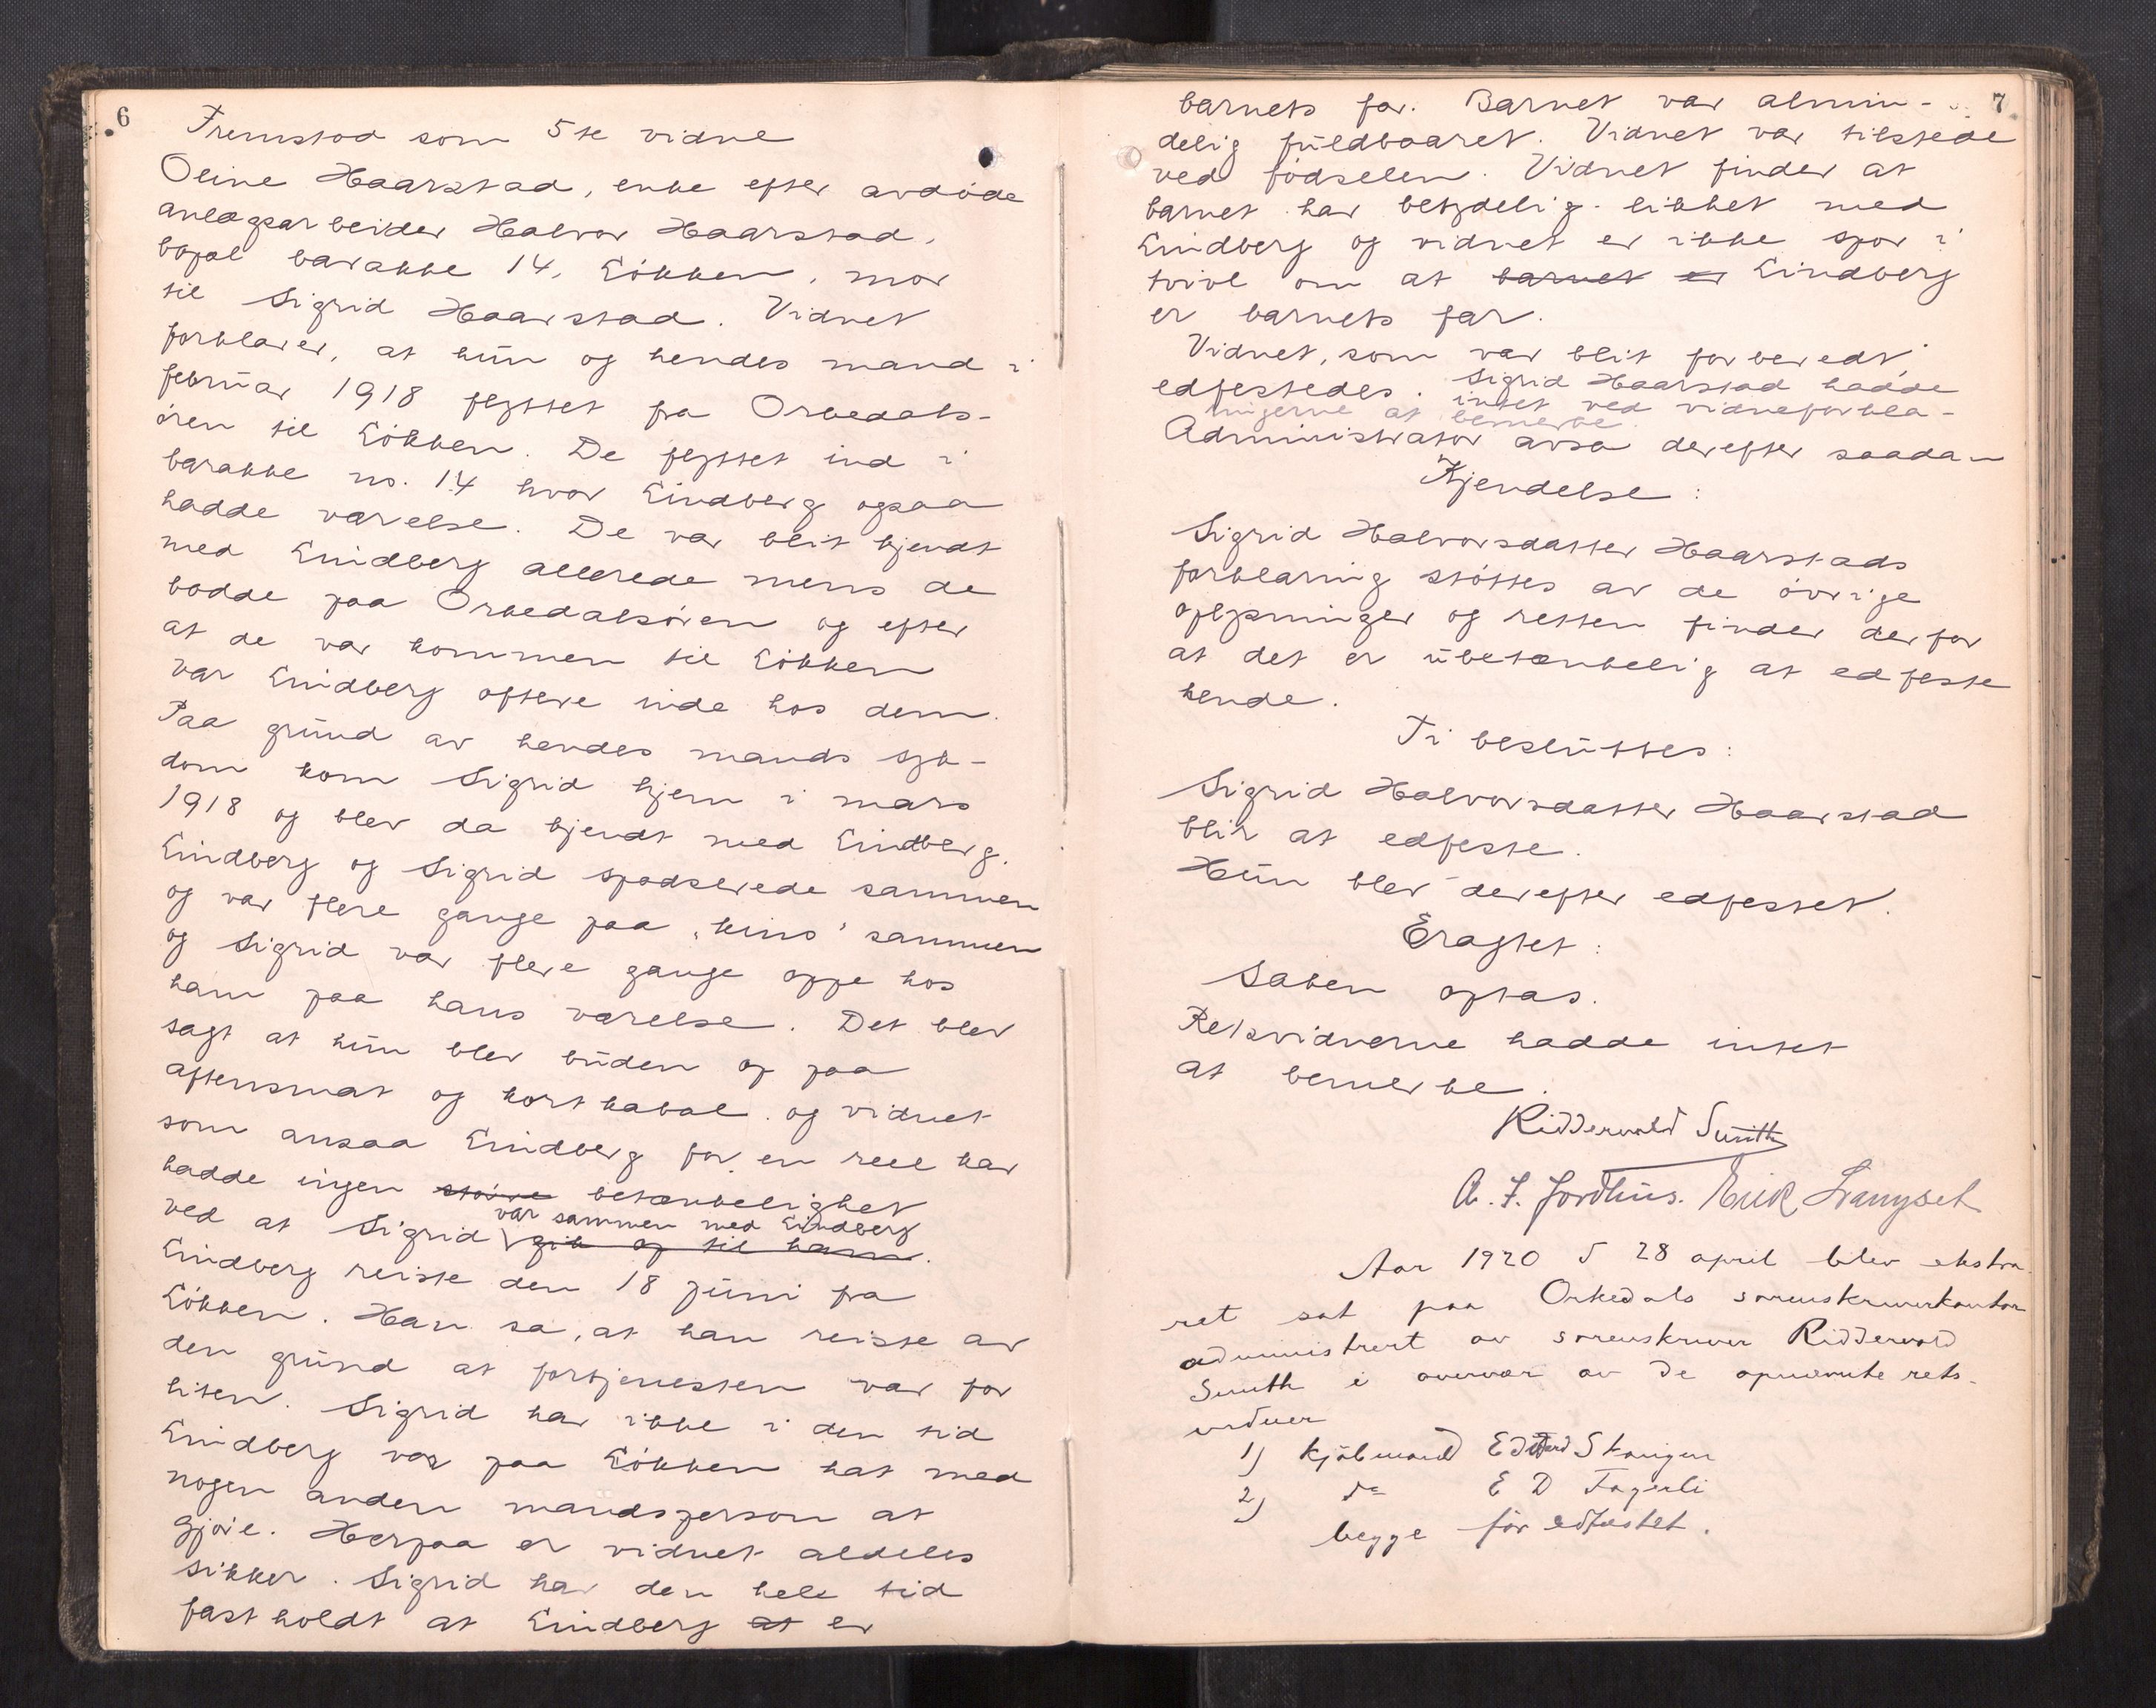 6
Fremstod som 5te vidne
Oline Haarstad, enke efter avdøde
anlægsarbeider Halvor Haarstad,
bopæl barakke 14, Løkken, mor
til Sigrid Haarstad. Vidnet
forklarer, at hun og hendes mand i
februar 1918 flyttet fra Orkedals-
øren til Løkken. De flyttet ind i
barakke no. 14 hvor Lindberg ogsaa
hadde værelse. De var blit kjendt
med Lindberg allerede mens de
bodde paa Orkedalsøren og efter
at de var kommen til Løkken
var Lindberg oftere inde hos dem.
Paa grund av hendes mands syk-
dom kom Sigrid hjem i mars
1918 og blev da kjendt med Lindberg.
Lindberg og Sigrid spadserede sammen
og var flere gange paa "kino" sammen
og Sigrid var flere gange oppe hos
ham paa hans værelse. Det blev
sagt at hun blev buden op paa
aftensmat og kortkabal og vidnet
som ansaa Lindberg for en reel kar
hadde ingen større betænkelighet
var sammen med Lindberg
ved at Sigrid gik op til ham.
Lindberg reiste den 18 juni fra
Løkken. Han sa, at han reiste av
den grund at fortjenesten var for
liten. Sigrid har ikke i den tid
Lindberg var paa Løkken hat med
nogen anden mandsperson at
gjøre. Herpaa er vidnet aldeles
sikker. Sigrid har den hele tid
fastholdt at Lindberg at er
7
barnets far. Barnet var almin-
delig fuldbaaret. Vidnet var tilstede
ved fødselen. Vidnet finder at
barnet har betydelig likhet med
Lindberg og vidnet er ikke spor i
tvivl om at barnet er Lindberg
er barnets far.
Vidnet, som var blit forberedt,
edfestedes. Sigrid Haarstad hadde
intet ved vidneforkla-
ringerne at bemerke.
Administrator avsa derefter saadan
Kjendelse:
Sigrid Halvorsdatter Haarstads
forklaring støttes av de øvrige
oplysninger og retten finder derfor
at det er ubetænkelig at edfeste
hende.
Ti besluttes:
Sigrid Halvorsdatter Haarstad
blir at edfeste.
Hun blev derefter edfestet.
Eragtet:
Saken optas.
Retsvidnerne hadde intet
at bemerke.
Ridderwold Smith
A. F. Jordhus. Erik Langseth
Aar 1920 d 28 april blev ekstra
ret sat paa Orkedals sorenskriverkontor
administrert av sorenskriver Ridderwold
Smith i overvær av de opnævnte rets-
vidner
1) Kjøbmand Edvard Skangen
2) do E D Fagerli
begge før edfæstet.